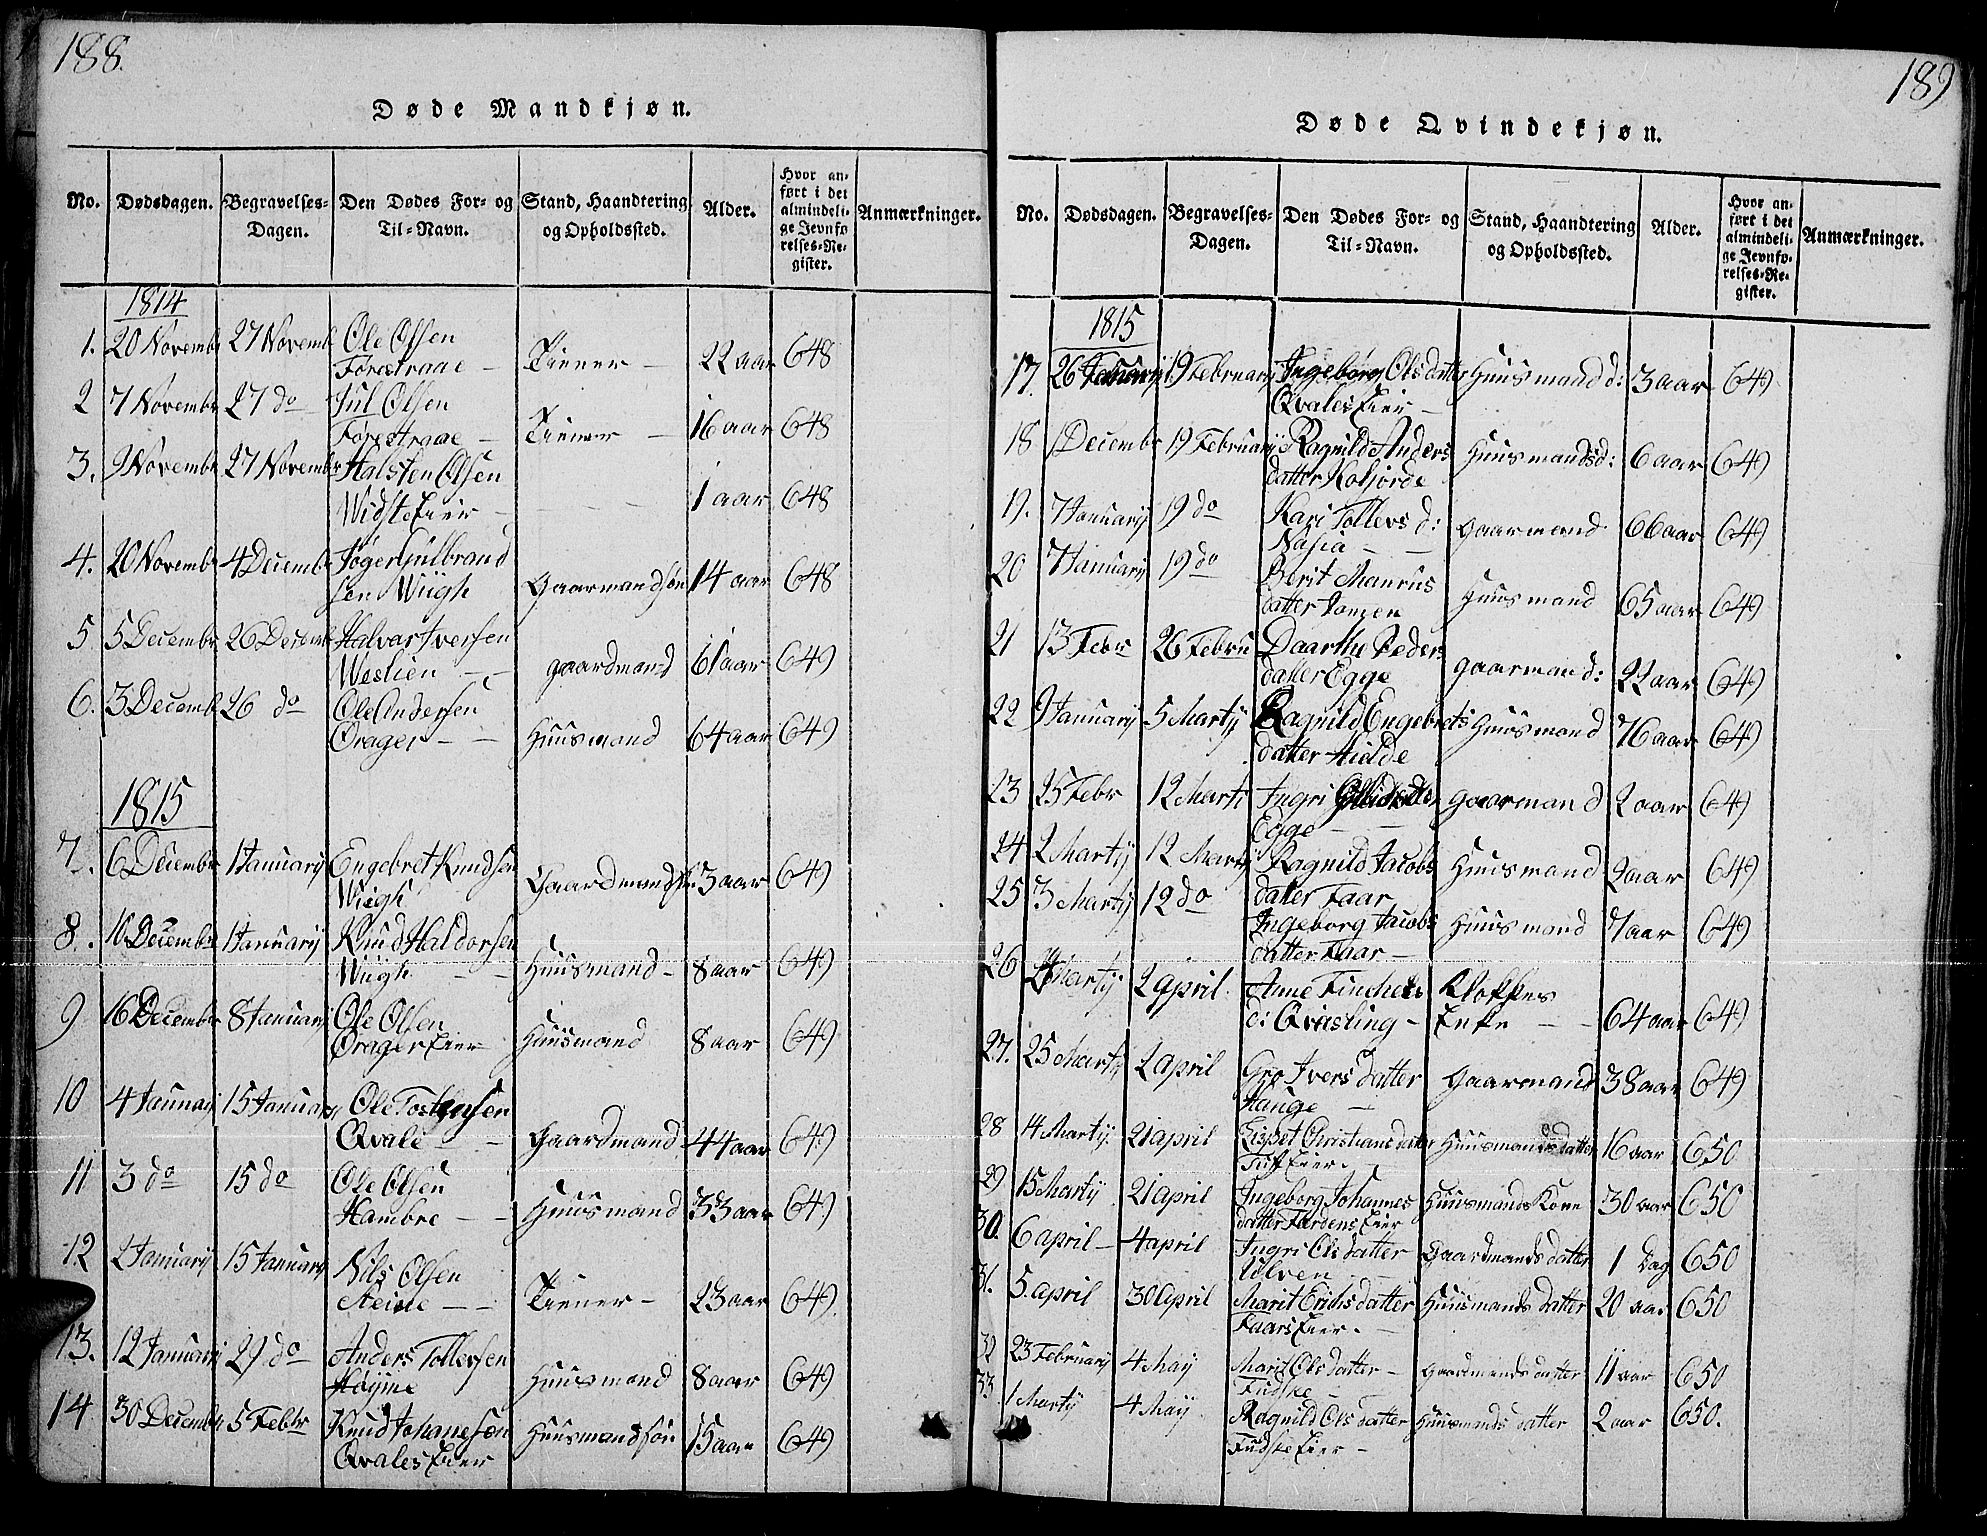 188.
Døde Mandkjøn.
No. Dødsdagen. Begravelses-Dagen. Den Dødes For- og Til-Navn. Stand, Haandtering og Opholdssted. Alder. Hvor anført i det almindelige Jevnførelses-Register. Anmærkninger.
1814
1. 20 Novembr 27 Novemb Ole Olsen
Førestraae — Tiener — 22 aar 648
2 7 Novembr 27 do Jul Olsen
Førestraae — Tiener — 16 aar 648
3. 9 Novembr 27 Novembr Halsten Olsen
Widste Eier — 1 aar 648
4. 20 Novembr 4 Decembr Jøger Gulbrand
sen Wiigh Gaarmandsøn 14 aar 648
5 5 Decembr 26 Decemb Halvar Iversen
Westien — gaardmand 61 aar 649
6. 3 Decemb 26 do Ole Andersen
Drager — Huusmand 64 aar 649
1815
7. 6 Decembr 1 Januarij Engebret Knudsen
Wiigh Gaardmands. 3 aar 649
8. 10 Decembr 1 Januarij Knud Haldorsen
Wiigh — Huusmand — 8 aar 649
9 16 Decembr 8 Januarij Ole Olsen
Drager Eier Huusmand 8 aar 649
10 4 Januarij 15 Januarij Ole Tostensen
Qvale — Gaardmand 44 aar 649
11 3 do 15 do Ole Olsen
Hambre — Huusmand 33 aar 649
12 2 Januarij 15 Januarij Nils Olsen
Steine — Tiener — 23 aar 649.
13. 12 Januarij 29 do Anders Tollevsen
Høyme Huusmand 8 aar 649
14 30 Decembr 5 Febr Knud Johanesen
Qvales Eier Huusmandsøn 15 aar 649
189
Døde Qvindekjøn.
No. Dødsdagen. Begravelses-Dagen. Den Dødes For- og Til-Navn. Stand, Haandtering og Opholdssted. Alder. Hvor anført i det almindelige Jevnførelses-Register. Anmærkninger.
1815
17. 26 Januarij 19 Februarij Ingebørg Olsdatter Huusmand d: 3 aar 649
Qvales Eier —
18 1 Decembr 19 Februarij Ragnild Anders Huusmandsd: 6 aar 649
datter Kolsorde
19. 7 Januarij 19 do Kari Tollevs d: gaarmand 66 aar 649
Nasia —
20 7 Januarij 19 do Berit Manrus Huusmand 65 aar 649
datter Jomen
21 13 Febr 26 Febru Daarthe Peders gaarmand: 22 aar 649
datter Egge
22 9 Januarij 5 Martij Ragnild Engebrets Huusmand 76 aar 649
datter Hielde
23 25 Febr 12 Marti Ingri gaarmand 2 aar 649
Egge —
24 2 Martij 12 Martij Ragnild Jacobs Huusmand 2 aar 649
datter Faar
25 3 Martij 12 do Ingeborg Jacobs Huusmand 7 aar 649
datter Faar —
26 Martij 2 april. Anne Finckels Klokkes
d: Qviesling — Enke — 64 aar 649
27. 25 Martij 2 april Gro Ivers datter Gaarmand 38 aar 649
Hauge —
28 14 Martij. 21 april Lispet Christiansdatter Huusmandsdatter 16 aar 650
Tuf Eier. —
29 15 Martij 21 april Ingeborg Johannes Huusmands Kone 30 aar 650
datter Førdens Eier
30. 6 april — 4 april Ingri Olsdatter Gaardmands datter 1 Dag 650
Ulven —
31. 5. april 30 april Marit Erichsdatter Huusmands datter 20 aar 650
Faars Eier. —
32 23 Februarij 4 Maij Marit Olsdatter — gaardmands datter 11 aar 650
Fudske —
33 1 Martij 4 Maij Ragnild Olsdatter Huusmands datter 2 aar 650.
Fudske Eier —